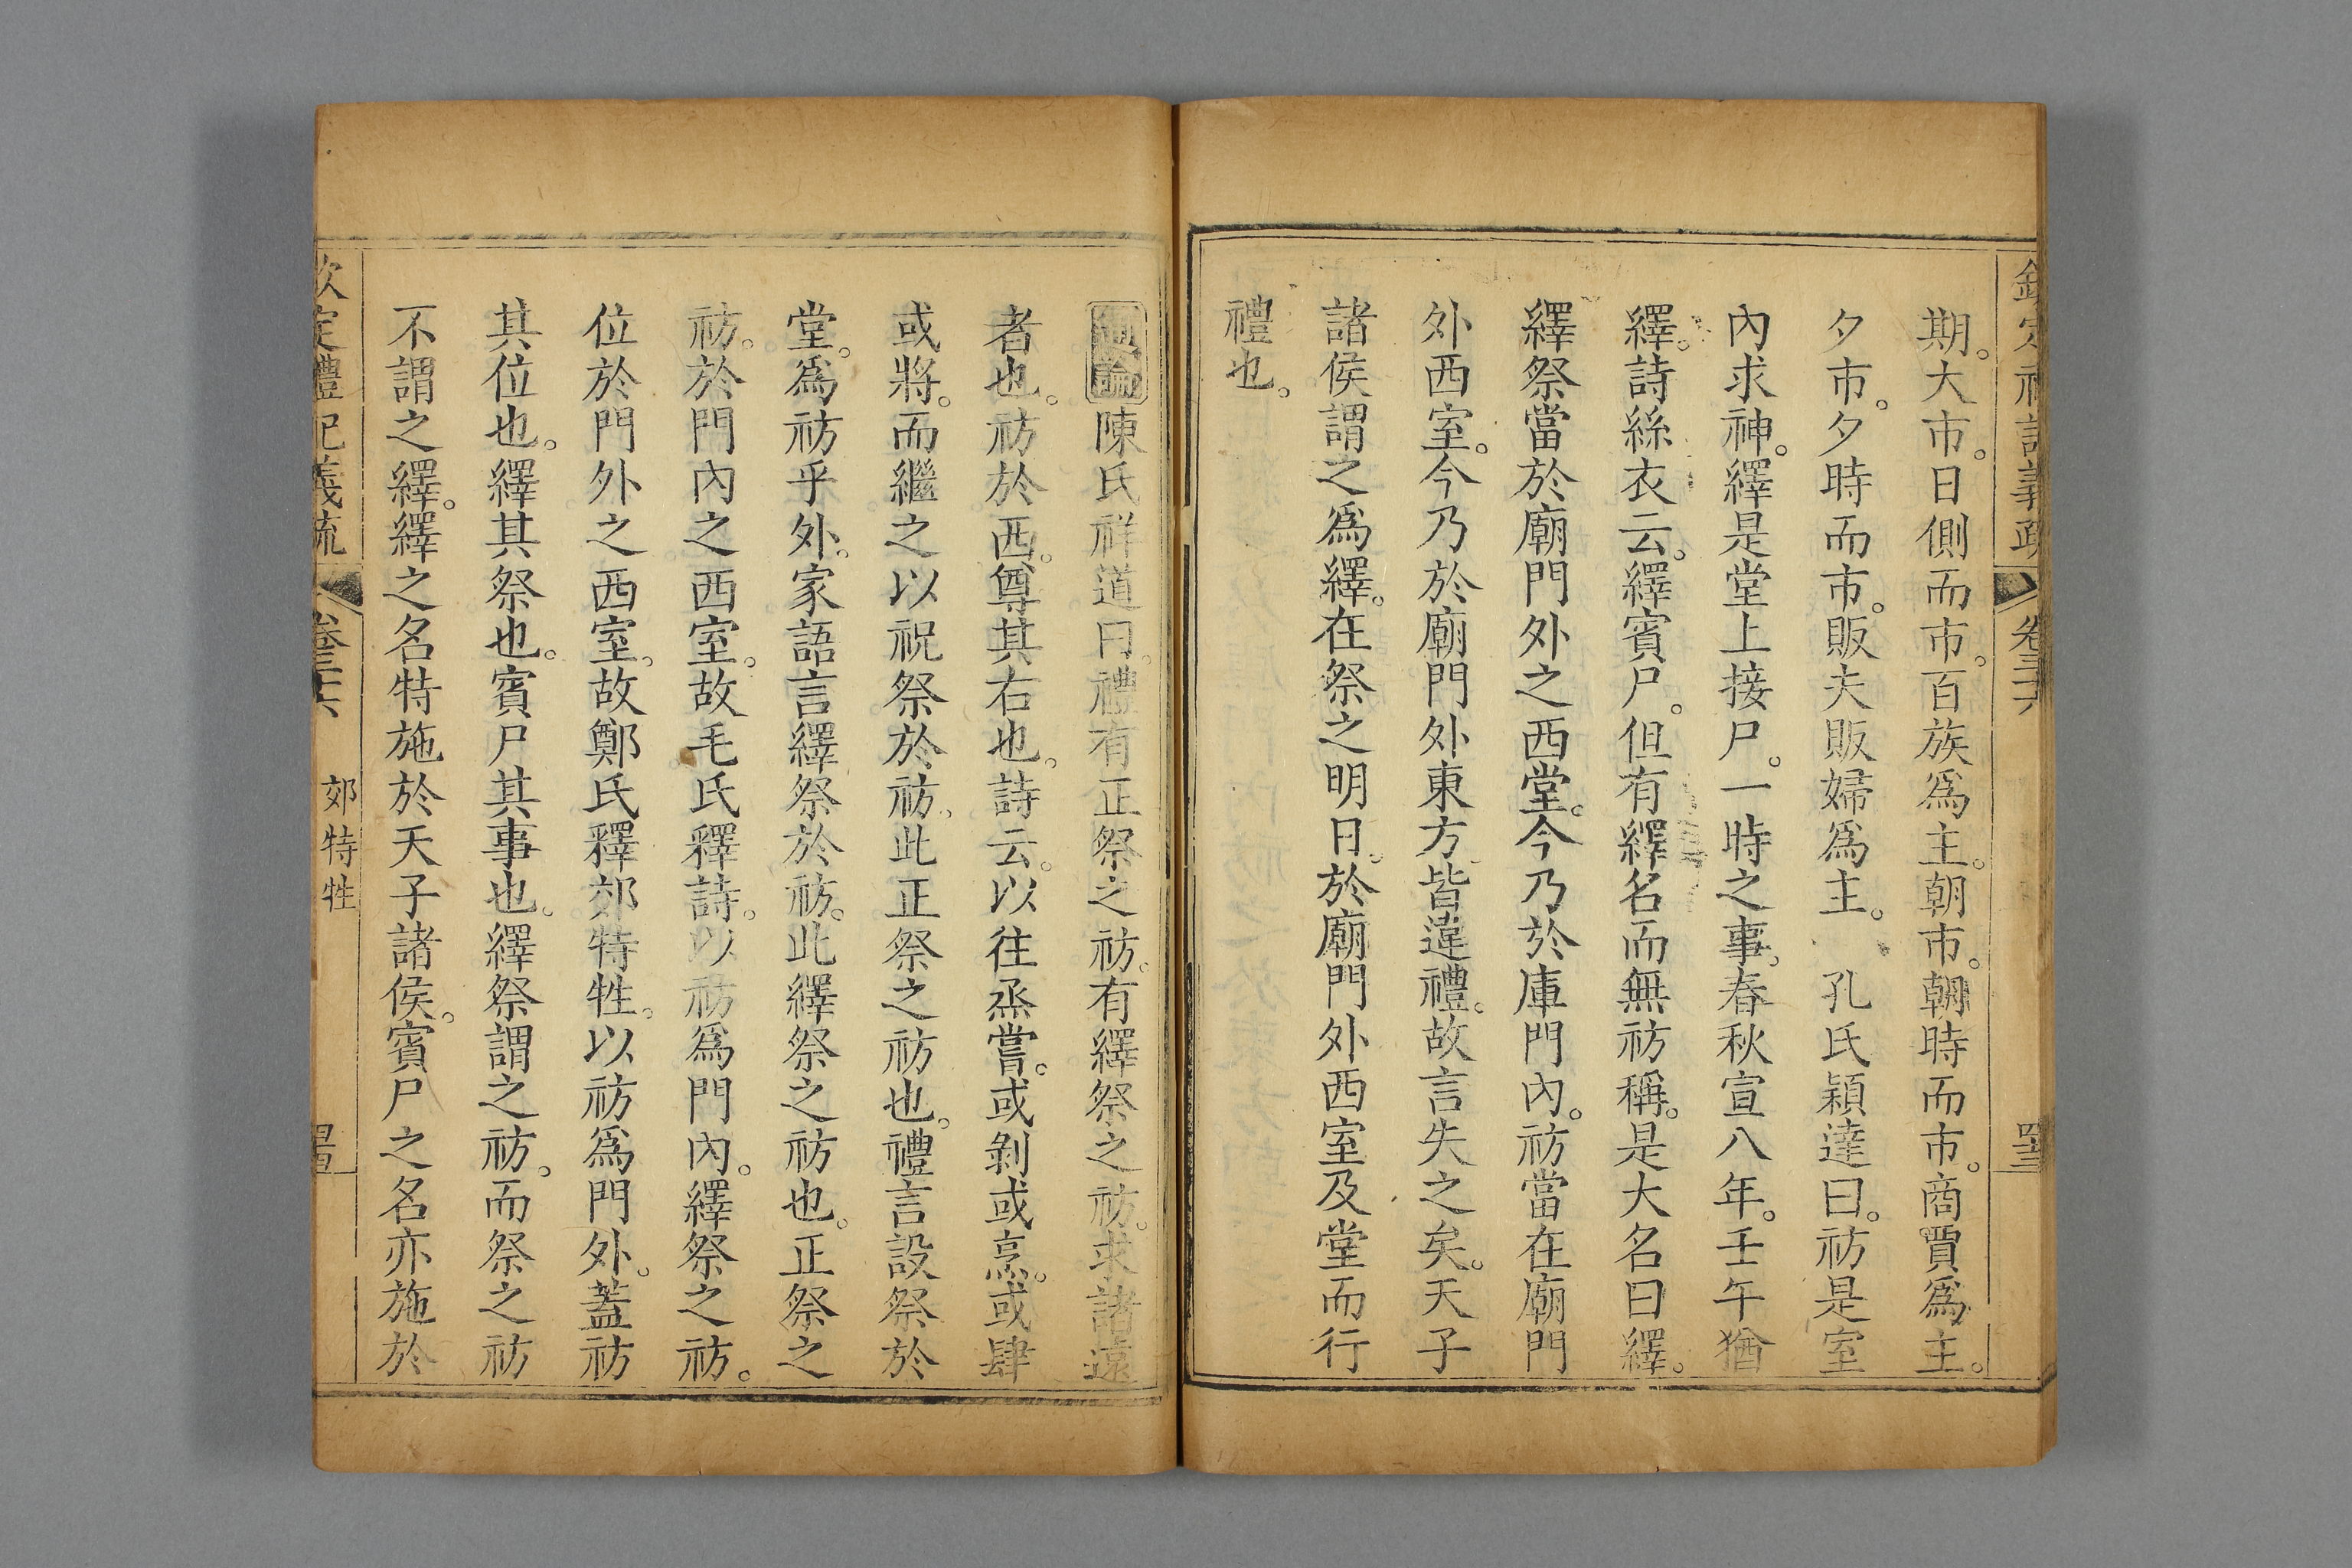 欽定禮記義疏 卷三六 四三
期。大市。日側而市。百族爲主。朝市。朝時而市。商賈爲主。
夕市。夕時而市。販夫販婦爲主。 孔氏穎達曰。祊是室
內求神。繹是堂上接尸。一時之事。春秋宣八年。壬午猶
繹。詩絲衣云。繹賓尸。但有繹名而無祊稱。是大名曰繹。
繹祭當於廟門外之西堂。今乃於庫門內。祊當在廟門
外西室。今乃於廟門外東方。皆違禮。故言失之矣。天子
諸侯謂之爲繹。在祭之明日。於廟門外西室及堂而行
禮也。
通論陳氏祥道曰。禮有正祭之祊。有繹祭之祊。求諸遠
者也。祊於西。尊其右也。詩云。以往烝嘗。或剝或烹。或肆
或將。而繼之以祝祭於祊。此正祭之祊也。禮言設祭於
堂。爲祊乎外。家語言繹祭於祊。此繹祭之祊也。正祭之
祊。於門內之西室。故毛氏釋詩。以祊爲門內。繹祭之祊。
位於門外之西室。故鄭氏釋郊特牲。以祊爲門外。蓋祊
其位也。繹其祭也。賓尸其事也。繹祭謂之祊。而祭之祊
不謂之繹。繹之名特施於天子諸侯。賓尸之名亦施於
欽定禮記義疏 卷三六 郊特牲